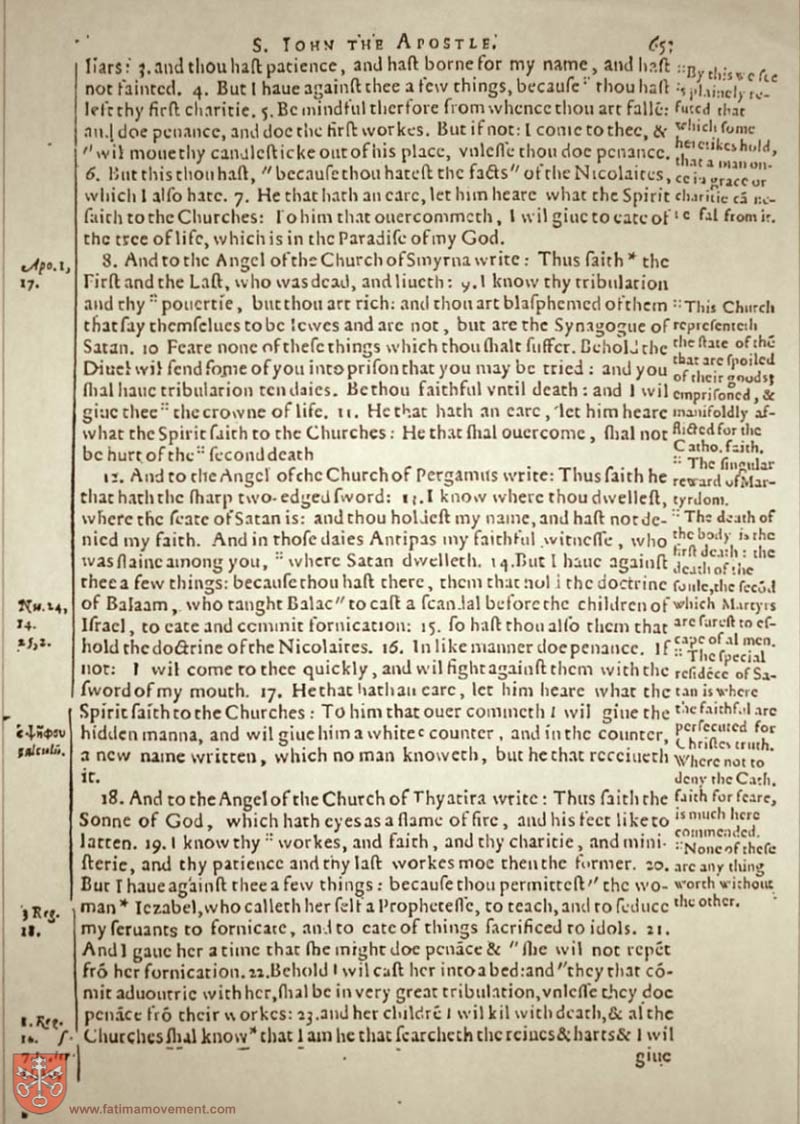 S. IOHN THE APOSTLE.
657
liars: 3. and thou haſt patience, and haſt borne for my name, and haſt
not fainted. 4. But I haue againſt thee a few things, becauſe :: thou haſt
left thy firſt charitie. 5. Be mindful therfore from whence thou art fallẽ:
and doe penance, and doe the firſt workes. But if not: I come to thee, &
"wil moue thy candleſticke out of his place, vnleſſe thou doe penance.
6. But this thou haſt, "becauſe thou hateſt the facts" of the Nicolaites,
which I alſo hate. 7. He that hath an eare, let him heare what the Spirit
ſaith to the Churches: To him that ouercommeth, I wil giue to eate of
the tree of life, which is in the Paradiſe of my God.
8. And to the Angel of the Church of Smyrna write: Thus ſaith * the
Firſt and the Laſt, who was dead, and liueth: 9. I know thy tribulation
and thy :: pouertie, but thou art rich: and thou art blaſphemed of them
that ſay themſelues to be Iewes and are not, but are the Synagogue of
Satan. 10 Feare none of theſe things which thou ſhalt ſuffer. Behold the
Diuel wil ſend ſome of you into priſon that you may be tried: and you
ſhal haue tribulation ten daies. Be thou faithful vntil death: and I wil
giue thee :: the crowne of life. 11. He that hath an eare, let him heare
what the Spirit ſaith to the Churches: He that ſhal ouercome, ſhal not
be hurt of the :: ſecond death
12. And to the Angel of the Church of Pergamus write: Thus ſaith he
that hath the ſharp two-edged ſword: 13. I know where thou dwelleſt,
where the ſeate of Satan is: and thou holdeſt my name, and haſt not de-
nied my faith. And in thoſe daies Antipas my faithful witneſſe, who
was ſlaine among you, :: where Satan dwelleth. 14. But I haue againſt
thee a few things: becauſe thou haſt there, them that hold the doctrine
of Balaam, who taught Balac" to caſt a ſcandal before the children of
Iſrael, to eate and commit fornication: 15. ſo haſt thou alſo them that
hold the doctrine of the Nicolaites. 16. In like manner doe penance. If
not: I wil come to thee quickly, and wil fight againſt them with the
ſword of my mouth. 17. He that hath an eare, let him heare what the
Spirit ſaith to the Churches: To him that ouer commeth I wil giue the
hidden manna, and wil giue him a white c counter, and in the counter,
a new name written, which no man knoweth, but he that receiueth
it.
18. And to the Angel of the Church of Thyatira write: Thus ſaith the
Sonne of God, which hath eyes as a flame of fire, and his feet like to
latten. 19. I know thy :: workes, and faith, and thy charitie, and mini-
ſterie, and thy patience and thy laſt workes moe then the former. 20.
But I haue againſt thee a few things: becauſe thou permitteſt" the wo-
man * Iezabel, who calleth her ſelf a Propheteſſe, to teach, and to ſeduce
my ſeruants to fornicate, and to eate of things ſacrificed to idols. 21.
And I gaue her a time that ſhe might doe penãce & "ſhe wil not repẽt
frõ her fornication. 22. Behold I wil caſt her into a bed: and "they that cõ-
mit aduoutrie with her, ſhal be in very great tribulation, vnleſſe they doe
penãce frõ their workes: 23. and her childrẽ I wil kil with death, & al the
Churches ſhal know * that I am he that ſearcheth the reines & harts & I wil
giue
:: By this we ſee
is plainely re-
futed that
which ſome
heretikes hold,
that a man on-
ce in grace or
charitie cã ne-
fal from it.
:: This Church
repreſenteth
the ſtate of thẽ
that are ſpoiled
of their goods,
empriſoned, &
manifoldly af-
flicted for the
Catho. faith.
:: The ſingular
reward of Mar-
tyrdom.
:: The death of
the body is the
firſt death: the
death of the
ſoule, the ſecõd
which Martyrs
are ſureſt to eſ-
cape of al men.
:: The ſpecial
reſidẽce of Sa-
tan is where
the faithful are
perſecuted for
Chriſtes truth.
Where not to
deny the Cath.
faith for feare,
is much here
commended.
:: None of theſe
are any thing
worth without
the other.
Apo. 1,
17.
Nu. 24,
14.
25, 2.
c ψῆφον
calculũ.
3 Reg.
18.
1. Reg.
16.
www.fatimamovement.com